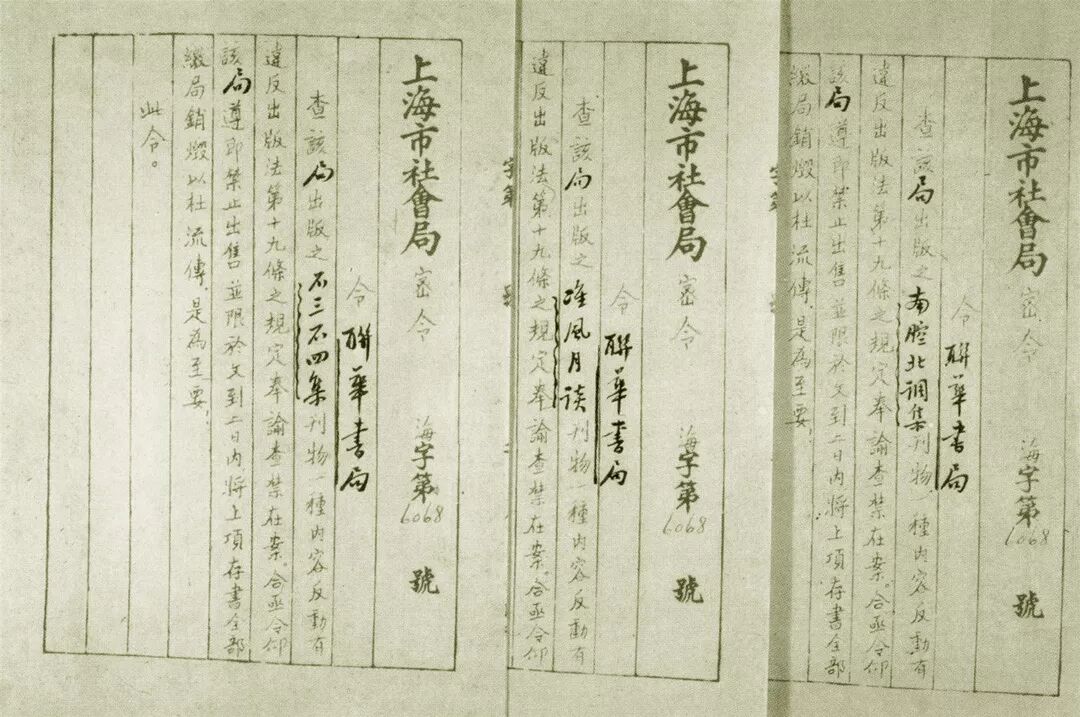 上海市社會局 密令 海字第6068號
令 聯華書局
查該局出版之南腔北调集刊物一種內容反動有
違反出版法第十九條之規定奉諭查禁在案。合亟令仰
該局遵即禁止出售並限於文到二日內將上項存書全部
繳局銷燬以杜流傳是為至要,
字第
上海市社會局 密令 海字第6068號
令 聯華書局
查該局出版之准風月谈刊物一種內容反動有
違反出版法第十九條之規定奉諭查禁在案。合亟令仰
字第
上海市社會局 密令 海字第6068號
令 聯華書局
查該局出版之不三不四集刊物一種內容反動有
違反出版法第十九條之規定奉諭查禁在案。合亟令仰
該局遵即禁止出售並限於文到二日內將上項存書全部
繳局銷燬以杜流傳是為至要,
此令。